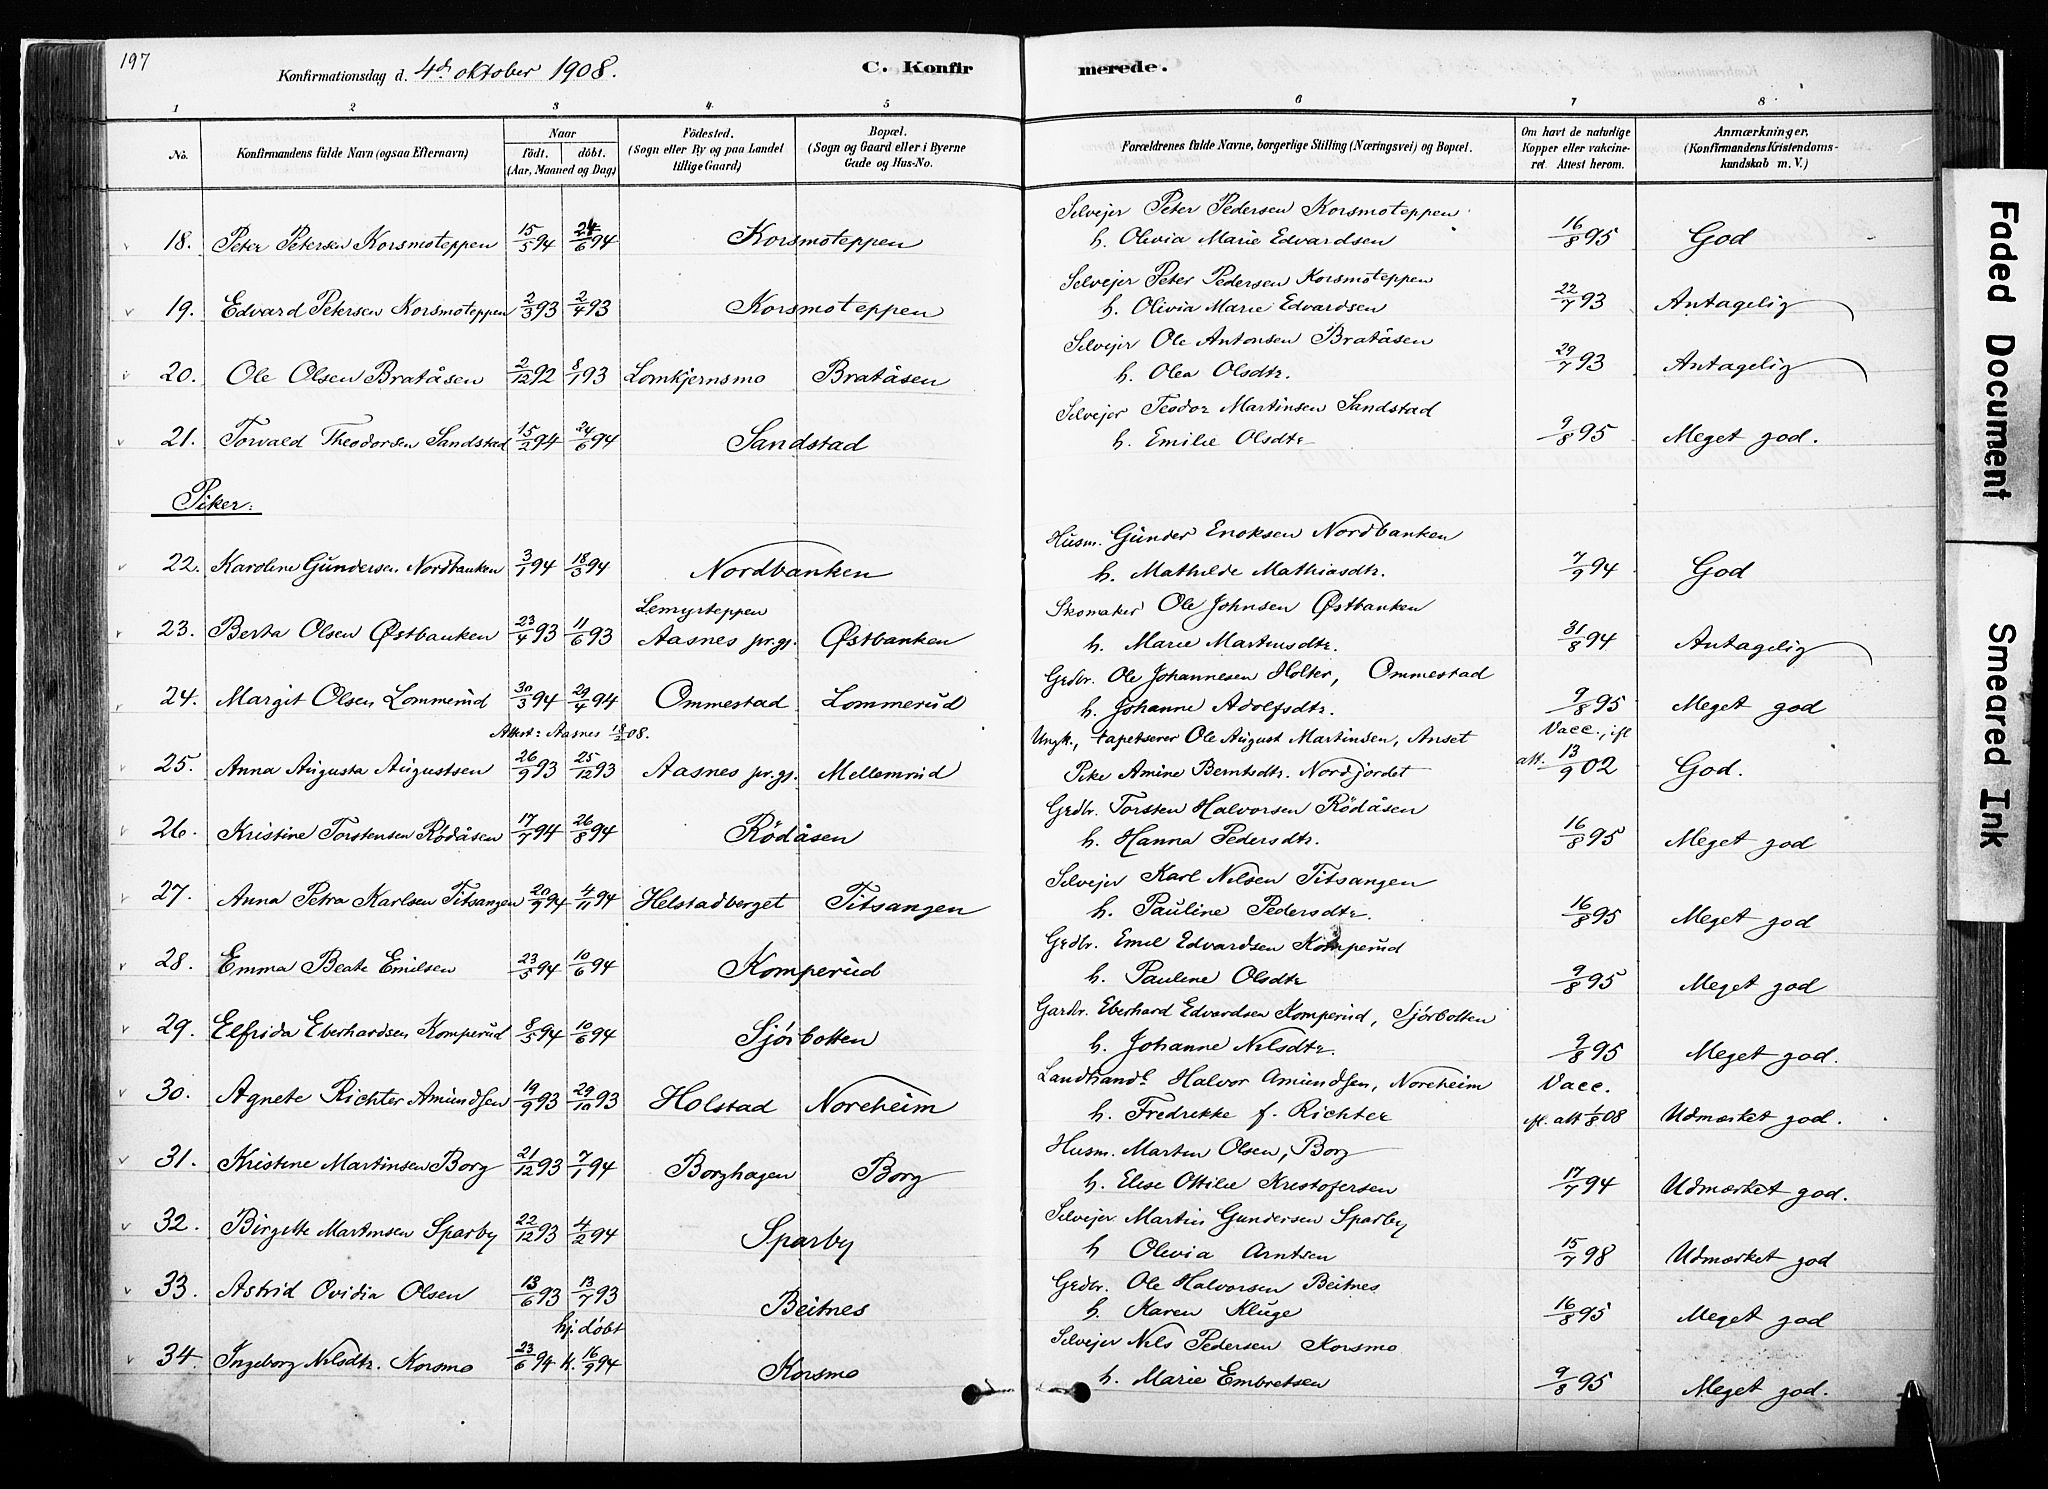 197
Konfirmationsdag d. 4de oktober 1908.
C. Konfirmerede.
1 2 3 4. 5 6 7 8.
No. | Konfirmandens fulde Navn (ogsaa Efternavn) | Naar Født. døbt. (Aar, Maaned og Dag) | Fødested. (Sogn eller By og paa Landet tillige Gaard) | Bopæl. (Sogn og Gaard eller i Byerne Gade og Hus-No. | Forældrenes fulde Navne, borgerlige Stilling (Næringsvei) og Bopæl. | Om havt de naturlige Kopper eller vakcineret. Attest herom. | Anmærkninger. (Konfirmandens Kristendomskundskab m. V.)
Selvejer Peter Pedersen Korsmoteppen
18. Peter Petersen Korsmoteppen 15/5 94 24/6 94 Korsmoteppen h. Olivia Marie Edvardsen 16/8 95 God
Selvejer Peter Pedersen Korsmoteppen
19. Edvard Petersen Korsmoteppen 2/3 93 2/4 93 Korsmoteppen h. Olivia Marie Edvardsen 22/7 93 Antagelig
Selvejer Ole Antonsen Bratåsen
20. Ole Olsen Bratåsen 2/12 92 8/1 93 Lomkjernsmo Bratåsen h. Olea Olsdtr. 29/7 93 Antagelig
Selvejer Teodor Martinsen Sandstad
21. Torvald Theodorsen Sandstad 15/2 94 24/6 94 Sandstad h. Emilie Olsdtr 9/8 95 Meget god.
Piker:
Husm. Gunder Enoksen Nordbanken
22. Karoline Gundersen Nordbanken 3/1 94 18/3 94 Nordbanken h. Mathilde Mathiasdtr. 7/9 94 God
Lemyrteppen Skomaker Ole Johnsen Østbanken
23. Berta Olsen Østbanken 23/4 93 11/6 93 Aasnes pr.gj. Østbanken h. Marie Martinsdtr. 31/8 94 Antagelig
Grdbr. Ole Johannesen Holter, Ommestad
24. Margit Olsen Lommerud 30/3 94 29/4 94 Ommestad Lommerud h. Johanne Adolfsdtr. 9/8 95 Meget god
Attest: Aasnes 18/2 08. Ungk., tapetserer Ole August Martinsen, Anset Vacc., ifl
25. Anna Augusta Augustsen 26/9 93 25/12 93 Aasnes pr.gj. Mellemrud Pike Amine Berntsdtr. Nordjordet att. 13/9 02 God.
Grdbr. Torsten Halvorsen Rödåsen
26. Kristine Torstensen Rødåsen 17/7 94 26/8 94 Rödåsen h. Hanna Pedersdtr. 16/8 95 Meget god
Selvejer Karl Nilsen Titsangen
27. Anna Petra Karlsen Titsangen 20/9 94 4/11 94 Helstadberget Titsangen h. Pauline Pedersdtr. 16/8 95 Meget god
Grdbr. Emil Edvardsen Komperud
28. Emma Beate Emilsen 23/5 94 10/6 94 Komperud h. Pauline Olsdtr 9/8 95 Meget god
Gardbr. Eberhard Edvardsen Komperud, Sjørbotten
29. Elfrida Eberhardsen Komperud 8/5 94 10/6 94 Sjørbotten h. Johanne Nilsdtr. 9/8 95 Meget god.
Landhandl. Halvor Amundsen, Noreheim Vacc.
30. Agnete Richter Amundsen 19/9 93 29/10 93 Holstad Noreheim h. Fredrikke f. Richter ifl. att 1/8 08 Udmærket god.
Husm. Martin Olsen, Borg
31. Kristine Martinsen Borg 21/12 93 7/1 94 Borghagen Borg h. Elise Ottilie Kristofersen 17/7 94 Udmærket god.
Selvejer Martin Gundersen Sparby
32. Birgitte Martinsen Sparby 22/12 93 4/2 94 Sparby h Olivia Arntsen 15/7 98 Udmærket god
Grdbr. Ole Halvorsen Beitnes
33. Astrid Ovidia Olsen 13/6 93 13/7 93 Beitnes h. Karen Kluge 16/8 95 Meget god
hj.døbt Selvejer Nils Pedersen Korsmo
34. Ingeborg Nilsdtr. Korsmo 23/6 94 k. 16/9 94 Korsmo h. Marie Embretsen 9/8 95 Meget god.
Faded Document
Smeared Ink